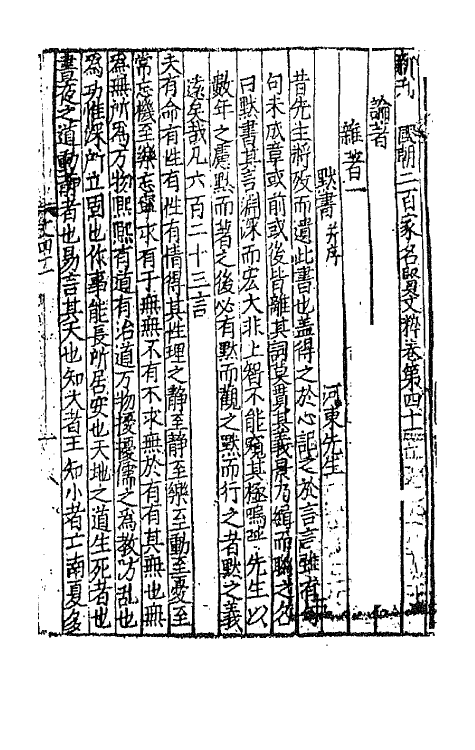 新刊國朝二百家名賢文粹卷第四十
論著
雜著一
默書并序 河東先生
昔先生將歿而遺此書也蓋得之於心記之於言言雖有
句未成章或前或後皆離其詞莫貫其義景乃緝而聯之名
曰默書其言淵深而宏大非上智不能窺其極嗚呼先生以
數年之慮默而著之後必有默而觀之默而行之者默之義
遠矣哉凡六百二十三言
夫有命有性有性有情得其性理之靜至靜至樂至動至憂至
常忘機至樂忘寧求有于無無不有不求無於有有其無也無
為無所為万物熙熙有道有治道万物擾擾儒之為教方亂也
為功惟深所立固也作事能長所居安也天地之道生死者也
晝夜之道動靜者也易言其天也知大者王知小者亡南夏多